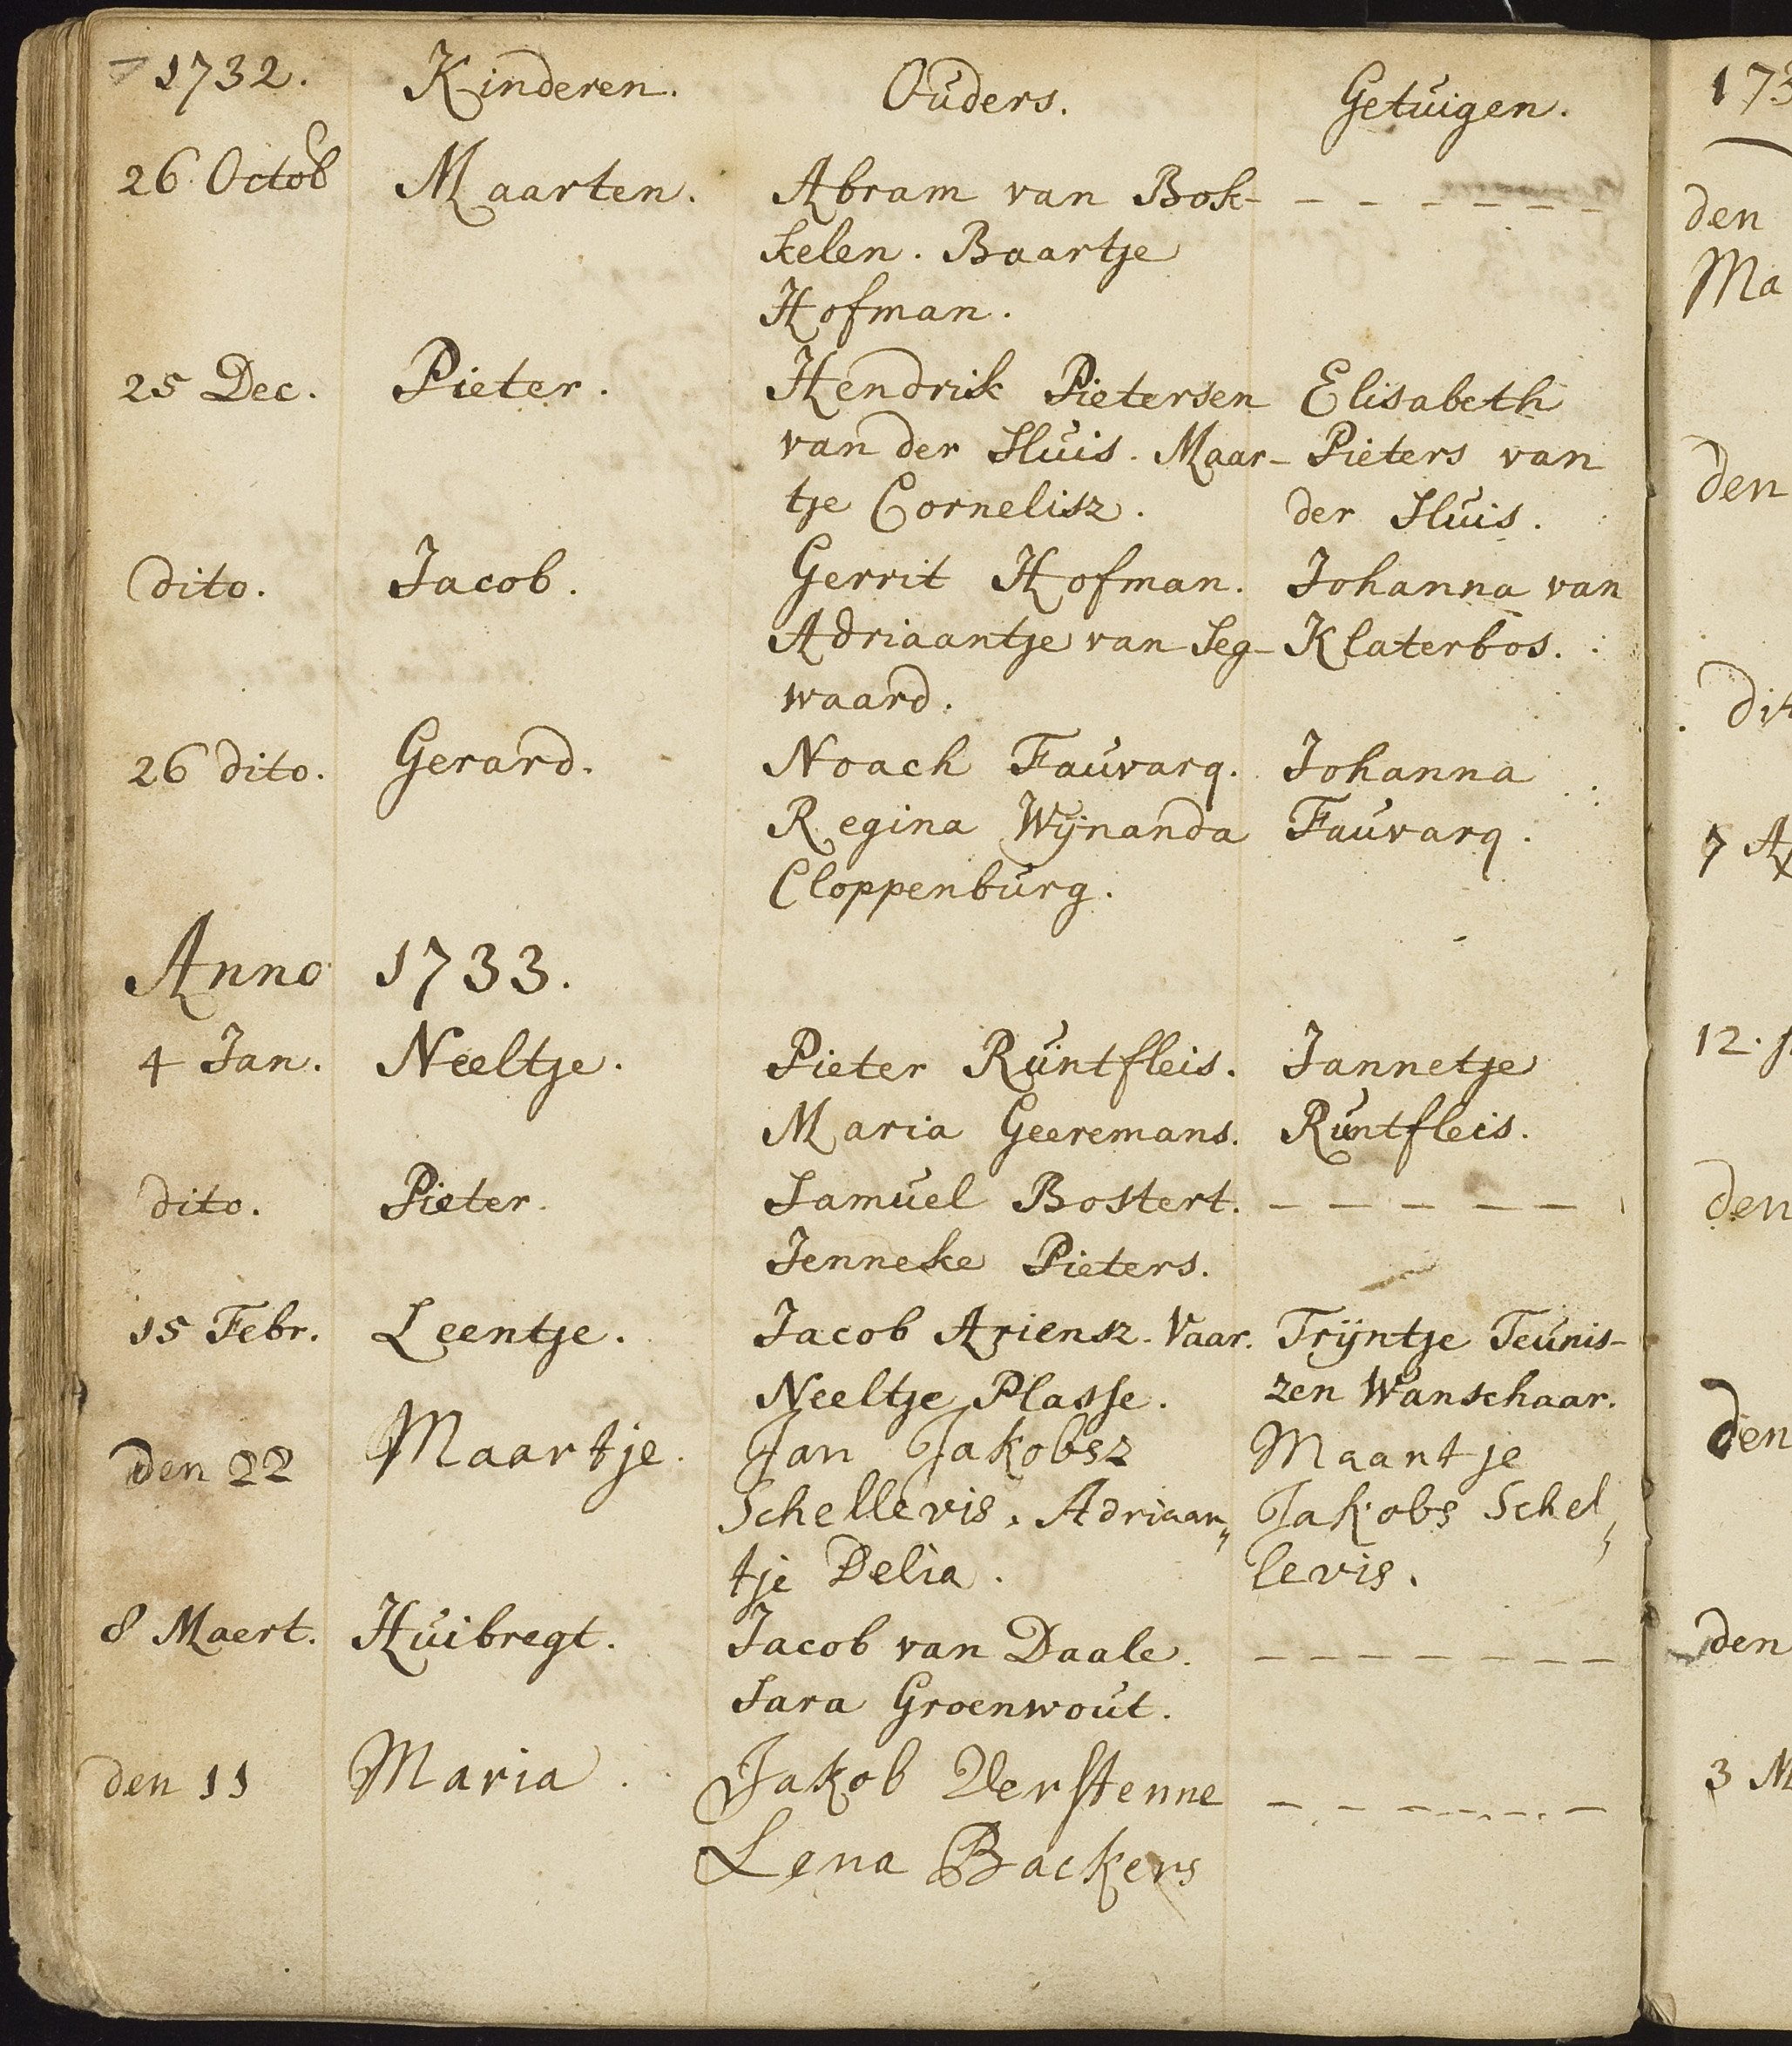 1732. Kinderen. Ouders. Getuigen.
26 Octob Maarten. Abram van Bok- - - - - - -
kelen. Baartje
Hofman.
25 Dec. Pieter. Hendrik Pietersen Elisabeth
van der Sluis. Maar- Pieters van
tje Cornelisz. der Sluis.
dito. Jacob. Gerrit Hofman. Johanna van
Adriaantje van Seg- Klaterbos.
waard.
26 dito. Gerard. Noach Fauvarq. Johanna
Regina Wijnanda Fauvarq.
Cloppenburg.
Anno 1733.
4 Jan. Neeltje. Pieter Runtfleis. Jannetje
Maria Geeremans. Runtfleis.
dito. Pieter. Samuel Bostert. - - - - -
Jenneke Pieters.
15 Febr. Leentje. Jacob Ariensz. Vaar. Trijntje Teunis-
Neeltje Plasse. zen Wanschaar.
den 22 Maartje. Jan Jakobsz Maantje
Schellevis, Adriaan„ Jakobs Schel„
tje Delia. levis.
8 Maert. Huibregt. Jacob van Daale. - - - - - - -
Sara Groenwout.
den 11 Maria. Jakob Verstenne - - - - - - -
Lena Backers
173
den
Ma
den
dit
7 A
12.
den
den
den
3 M